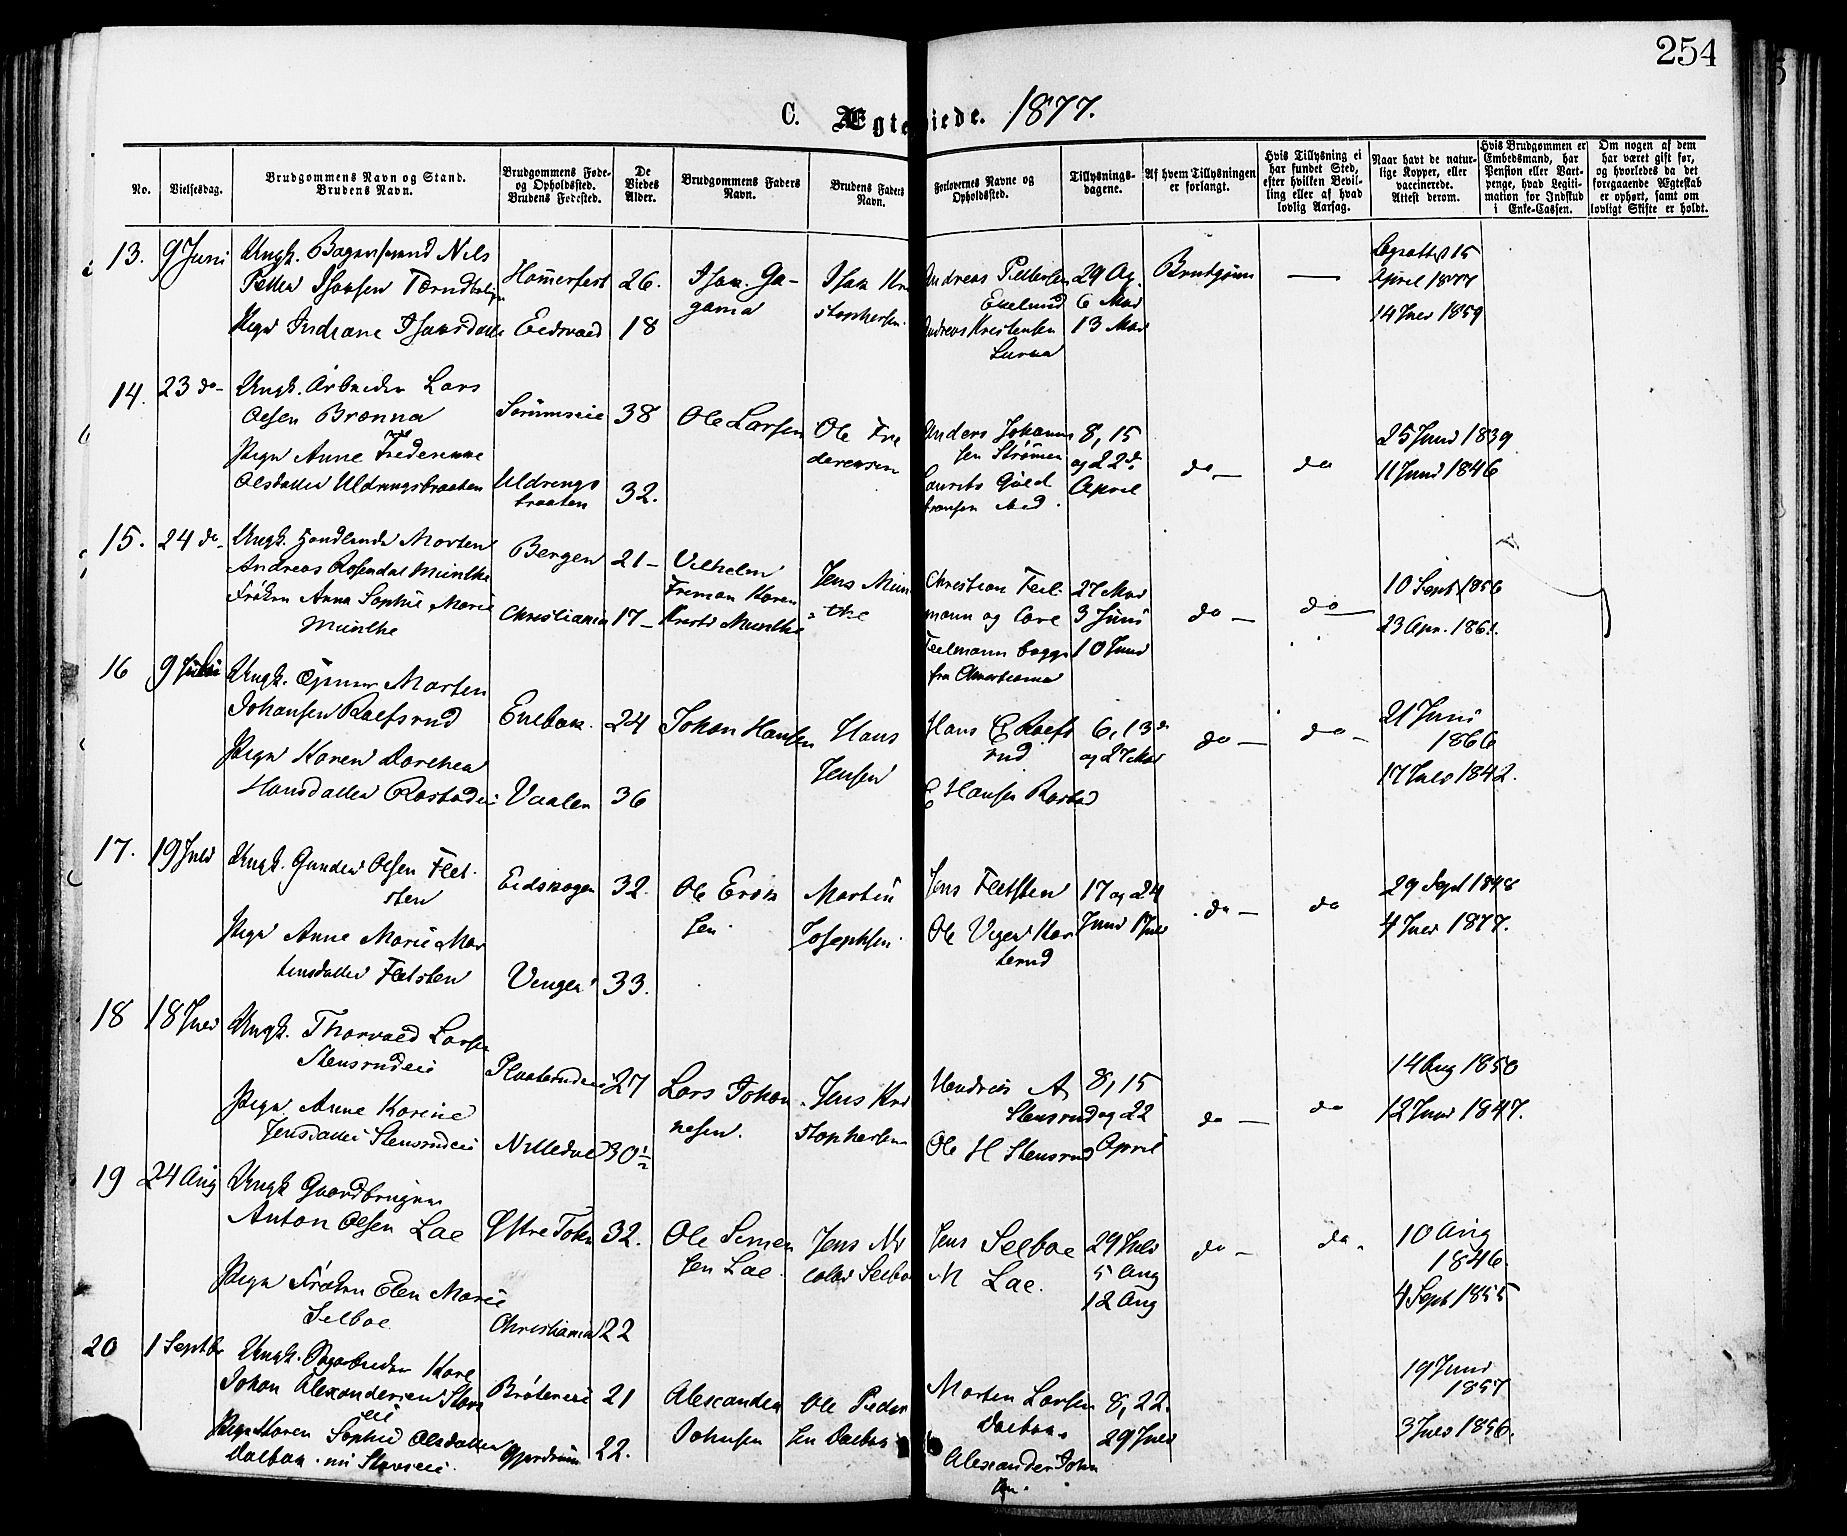 254
C. Ægteviede. 1877.
No.
Vielsesdag.
Brudgommens Navn og Stand.
Brudens Navn.
Brudgommens Føde-
og Opholdssted.
Brudens Fødested.
De
Viedes
Alder.
Brudgommens Faders
Navn.
Brudens Faders
Navn.
Forlovernes Navne og
Opholdssted.
Tillysnings-
dagene.
Af hvem Tillysningen
er forlangt.
Hvis Tillysning ei
har fundet Sted,
efter hvilken Bevil-
ling eller af hvad
lovlig Aarsag.
Naar havt de natur-
lige Kopper, eller
vaccinerede.
Attest derom.
Hvis Brudgommen er
Embedsmand, har
Pension eller Vart-
penge, hvad Legiti-
mation for Indskud
i Enke-Cassen.
Om nogen af dem
har været gift før,
og hvorledes da det
foregaaende Ægteskab
er ophørt, samt om
lovligt Skifte er holdt.
13. 9 Juni
Ungk. Nils
Petter Isaksen
Pige Indiane Isaksdatter
Hamerfest 26.
Eidsvold 18
Isak Ga-
gama
Isak Kri
stophersen
Andreas Pettersen
Ekelund
Andreas Kristensen
29 Ap.
6 Mai
13 Mai
Brudgom —
15
April 1877
14 Juli 1859
14. 23 do
Ungk. Arbeider Lars
Olsen Brænna
Pige Anne Frederikke
Olsdatter Uldrengsbraaten
Sørumseie 38
Uldrengs
braaten 32.
Ole Larsen
Ole Fre
deriksen
Anders Johann
sen Strømen
Laurits Guld
bransen
8, 15
og 22 d.
April
do — do
25 Juni 1839
11 Juni 1846
15. 24 do
Ungk. Handlende Morten
Andreas Rosendal Munthe
Frøken Anna Sophie Marie
Munthe
Bergen 21
Christiania 17
Vilhelm
Freman Koren
Munthe
Jens Mun
the
Christian Feil
mann og
Feilmann
fra Christiania
27 Mai
3 Juni
10 Juni
do — do
10 Sept 1856
23 Apr. 1861.
16 9 Juli
Ungk. Morten
Johansen Roefsrud
Pige Karen Dorthea
Hansdatter Rostadei
Enebak 24
Vaaler 36
Johan Hansen
Hans
Jensen
Hans Roefs
rud
Hansen Rostad
6, 13 d.
og 27 Mai
do — do
21 Juni
1866
17 Juli 1842.
17. 19 Juli
Ungk. Gunder Olsen Flet-
sten
Pige Anne Marie Mar
tinsdatter Fletsten
Eidskogen 32.
Vinger 33.
Ole Erik
sen
Martin
Josephsen
Jens Fletsten
Ole
17 og 24
Juni 1 Juli
do — do
29 Sept 1848
4 Juli 1877.
18 18 Juli
Ungk. Thorvald Larsen
Stensrudeie
Pige Anne Karine
Jensdatter Stensrudeie
27
Nittedal 30½
Lars Johan
nesen.
Jens Kri
stophersen
Hendrik A.
Stensrud
Ole H Stensrud
8, 15
og 22
April
do — do
14 Aug 1850
12 Juni 1847.
19 24 Aug
Ungk Gaardbruger
Anton Olsen Lae
Pige Frøken Elen Marie
Selboe
Østre Toten 32.
Christiania 22
Ole Simen
sen Lae
Jens Ni
colai Selboe
Jens Selboe
M Lae.
29 Juli
5 Aug
12 Aug
do — do
10 Aug
1846.
4 Sept 1855
20 1 Septbr
Ungk. Karl
Johan Alexandersen
Pige Karen Sophie Olsdatter
Dalbak
Brøtereie 21
Gjerdrum 22.
Alexander
Johnsen
Ole Peder
sen Dalbak
Morten Larsen
Dalbak
Alexander John
sen.
8, 22.
29 Juli
19 Juni
1857
3 Juli 1856.